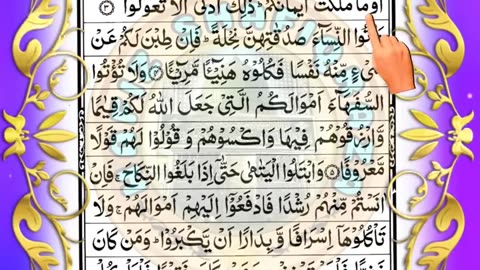 اَوۡمَا مَلَكَتۡ اَيۡمَانُكُمۡ ؕ ذٰلِكَ اَدۡنٰٓى اَلَّا تَعُوۡلُوۡا ؕ‏ ﴿۳﴾
وَاٰتُوا النِّسَآءَ صَدُقٰتِهِنَّ نِحۡلَةً ؕ فَاِنۡ طِبۡنَ لَـكُمۡ عَنۡ
شَىۡءٍ مِّنۡهُ نَفۡسًا فَكُلُوۡهُ هَنِيۡٓـئًـا مَّرِیۡٓــئًا ﴿۴﴾ وَلَا تُؤۡتُوا
السُّفَهَآءَ اَمۡوَالَـكُمُ الَّتِىۡ جَعَلَ اللّٰهُ لَـكُمۡ قِيٰمًا
وَّارۡزُقُوۡهُمۡ فِيۡهَا وَاكۡسُوۡهُمۡ وَقُوۡلُوۡا لَهُمۡ قَوۡلًا
مَّعۡرُوۡفًا ﴿۵﴾ وَابۡتَلُوا الۡيَتٰمٰى حَتّٰىۤ اِذَا بَلَغُوا النِّكَاحَ‌ ۚ فَاِنۡ
اٰنَسۡتُمۡ مِّنۡهُمۡ رُشۡدًا فَادۡفَعُوۡۤا اِلَيۡهِمۡ اَمۡوَالَهُمۡ‌ۚ وَلَا
تَاۡكُلُوۡهَاۤ اِسۡرَافًا وَّبِدَارًا اَنۡ يَّكۡبَرُوۡا‌ ؕ وَمَنۡ كَانَ